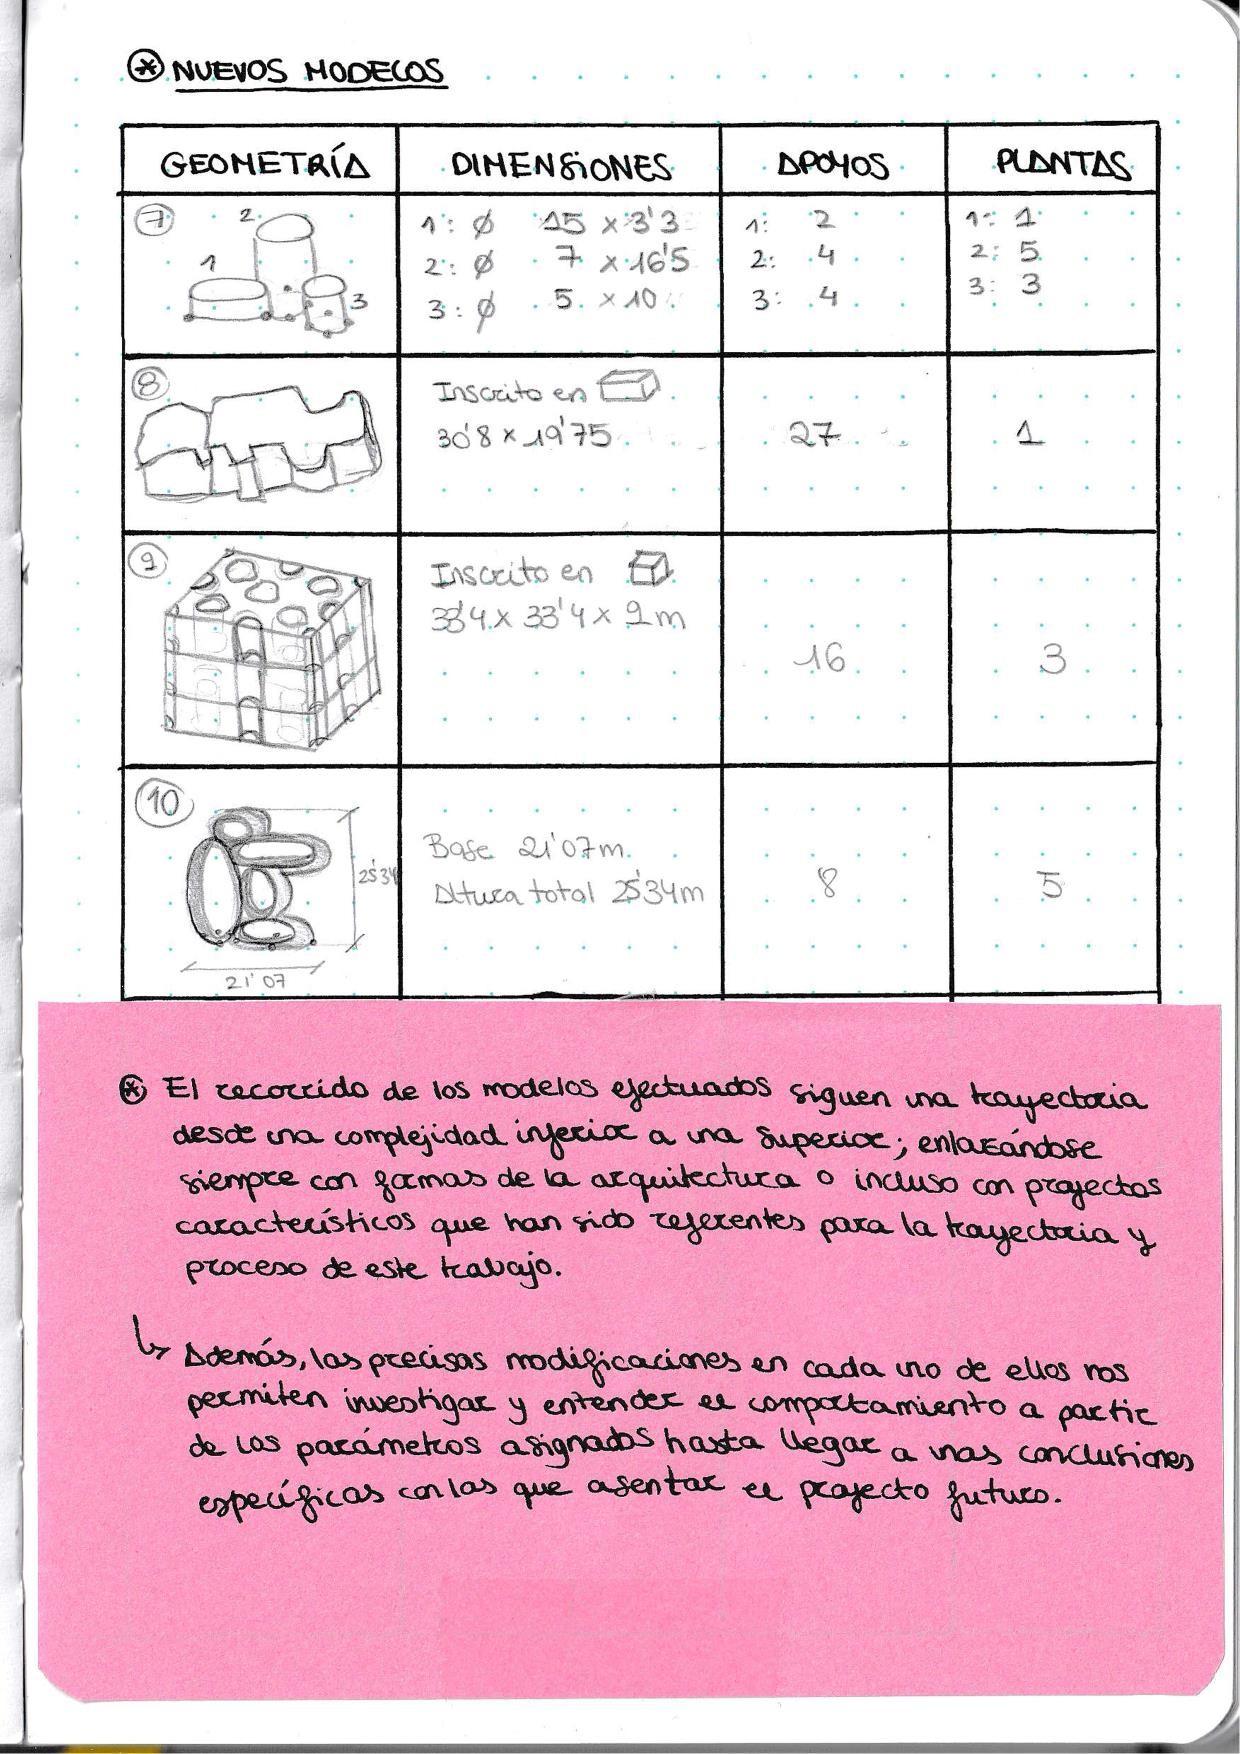 NUEVOS MODELOS
GEOMETRÍA DIMENSIONES APOYOS PLANTAS
7 2 1 3
1: Ø 15 x 3'3
2: Ø 7 x 16'5
3: Ø 5 x 10
1: 2
2: 4
3: 4
1: 1
2: 5
3: 3
8
Inscrito en
30'8 x 19'75
27
1
9
Inscrito en
33'4 x 33'4 x 9m
16
3
10
25'34
21'07
Base 21'07m
Altura total 25'34m
8
5
El recorrido de los modelos efectuados siguen una trayectoria
desde una complejidad inferior a una superior; enlazándose
siempre con formas de la arquitectura o incluso con proyectos
característicos que han sido referentes para la trayectoria y
proceso de este trabajo.
↳ Además, las precisas modificaciones en cada uno de ellos nos
permiten investigar y entender el comportamiento a partir
de los parámetros asignados hasta llegar a unas conclusiones
específicas con las que asentar el proyecto futuro.